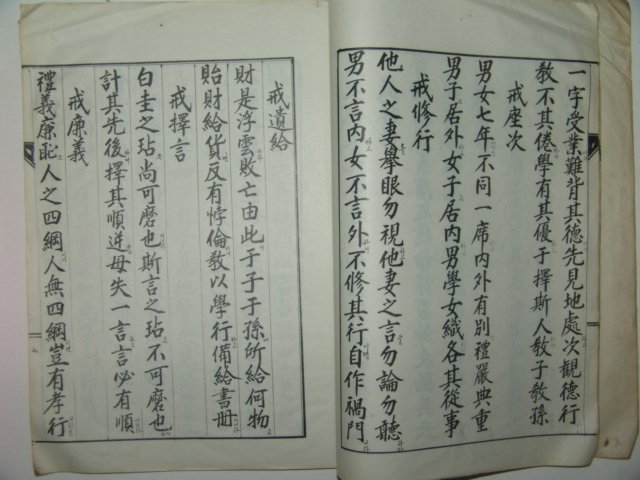 一字受業難背其德先見地處次觀德行
敎不其倦學有其優于擇斯人敎子敎孫
戒座次
男女七年不同一席內外有別禮嚴典重
男子居外女子居內男學女織各其從事
戒修行
他人之妻擧眼勿視他妻之言勿論勿聽
男不言內女不言外不修其行自作禍門
戒遺給
財是浮雲敗亡由此于子于孫所給何物
貽財給貨反有悖倫敎以學行備給書冊
戒擇言
白圭之玷尙可磨也斯言之玷不可磨也
計其先後擇其順逆毋失一言言必有順
戒廉義
禮義廉恥人之四綱人無四綱豈有孝行
七